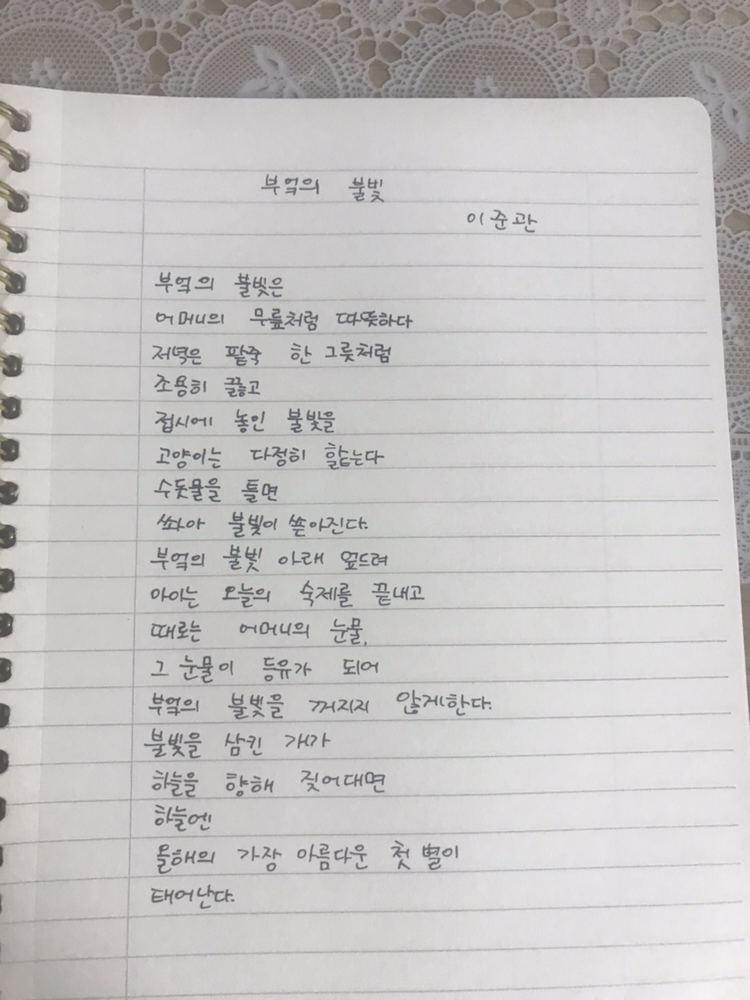 부엌의 불빛
이준관
부엌의 불빛은
어머니의 무릎처럼 따뜻하다
저녁은 팥죽 한 그릇처럼
조용히 끓고
접시에 놓인 불빛을
고양이는 다정히 핥는다
수돗물을 틀면
쏴아 불빛이 쏟아진다.
부엌의 불빛 아래 엎드려
아이는 오늘의 숙제를 끝내고
때로는 어머니의 눈물,
그 눈물이 등유가 되어
부엌의 불빛을 꺼지지 않게한다.
불빛을 삼킨 개가
하늘을 향해 짖어대면
하늘엔
올해의 가장 아름다운 첫 별이
태어난다.